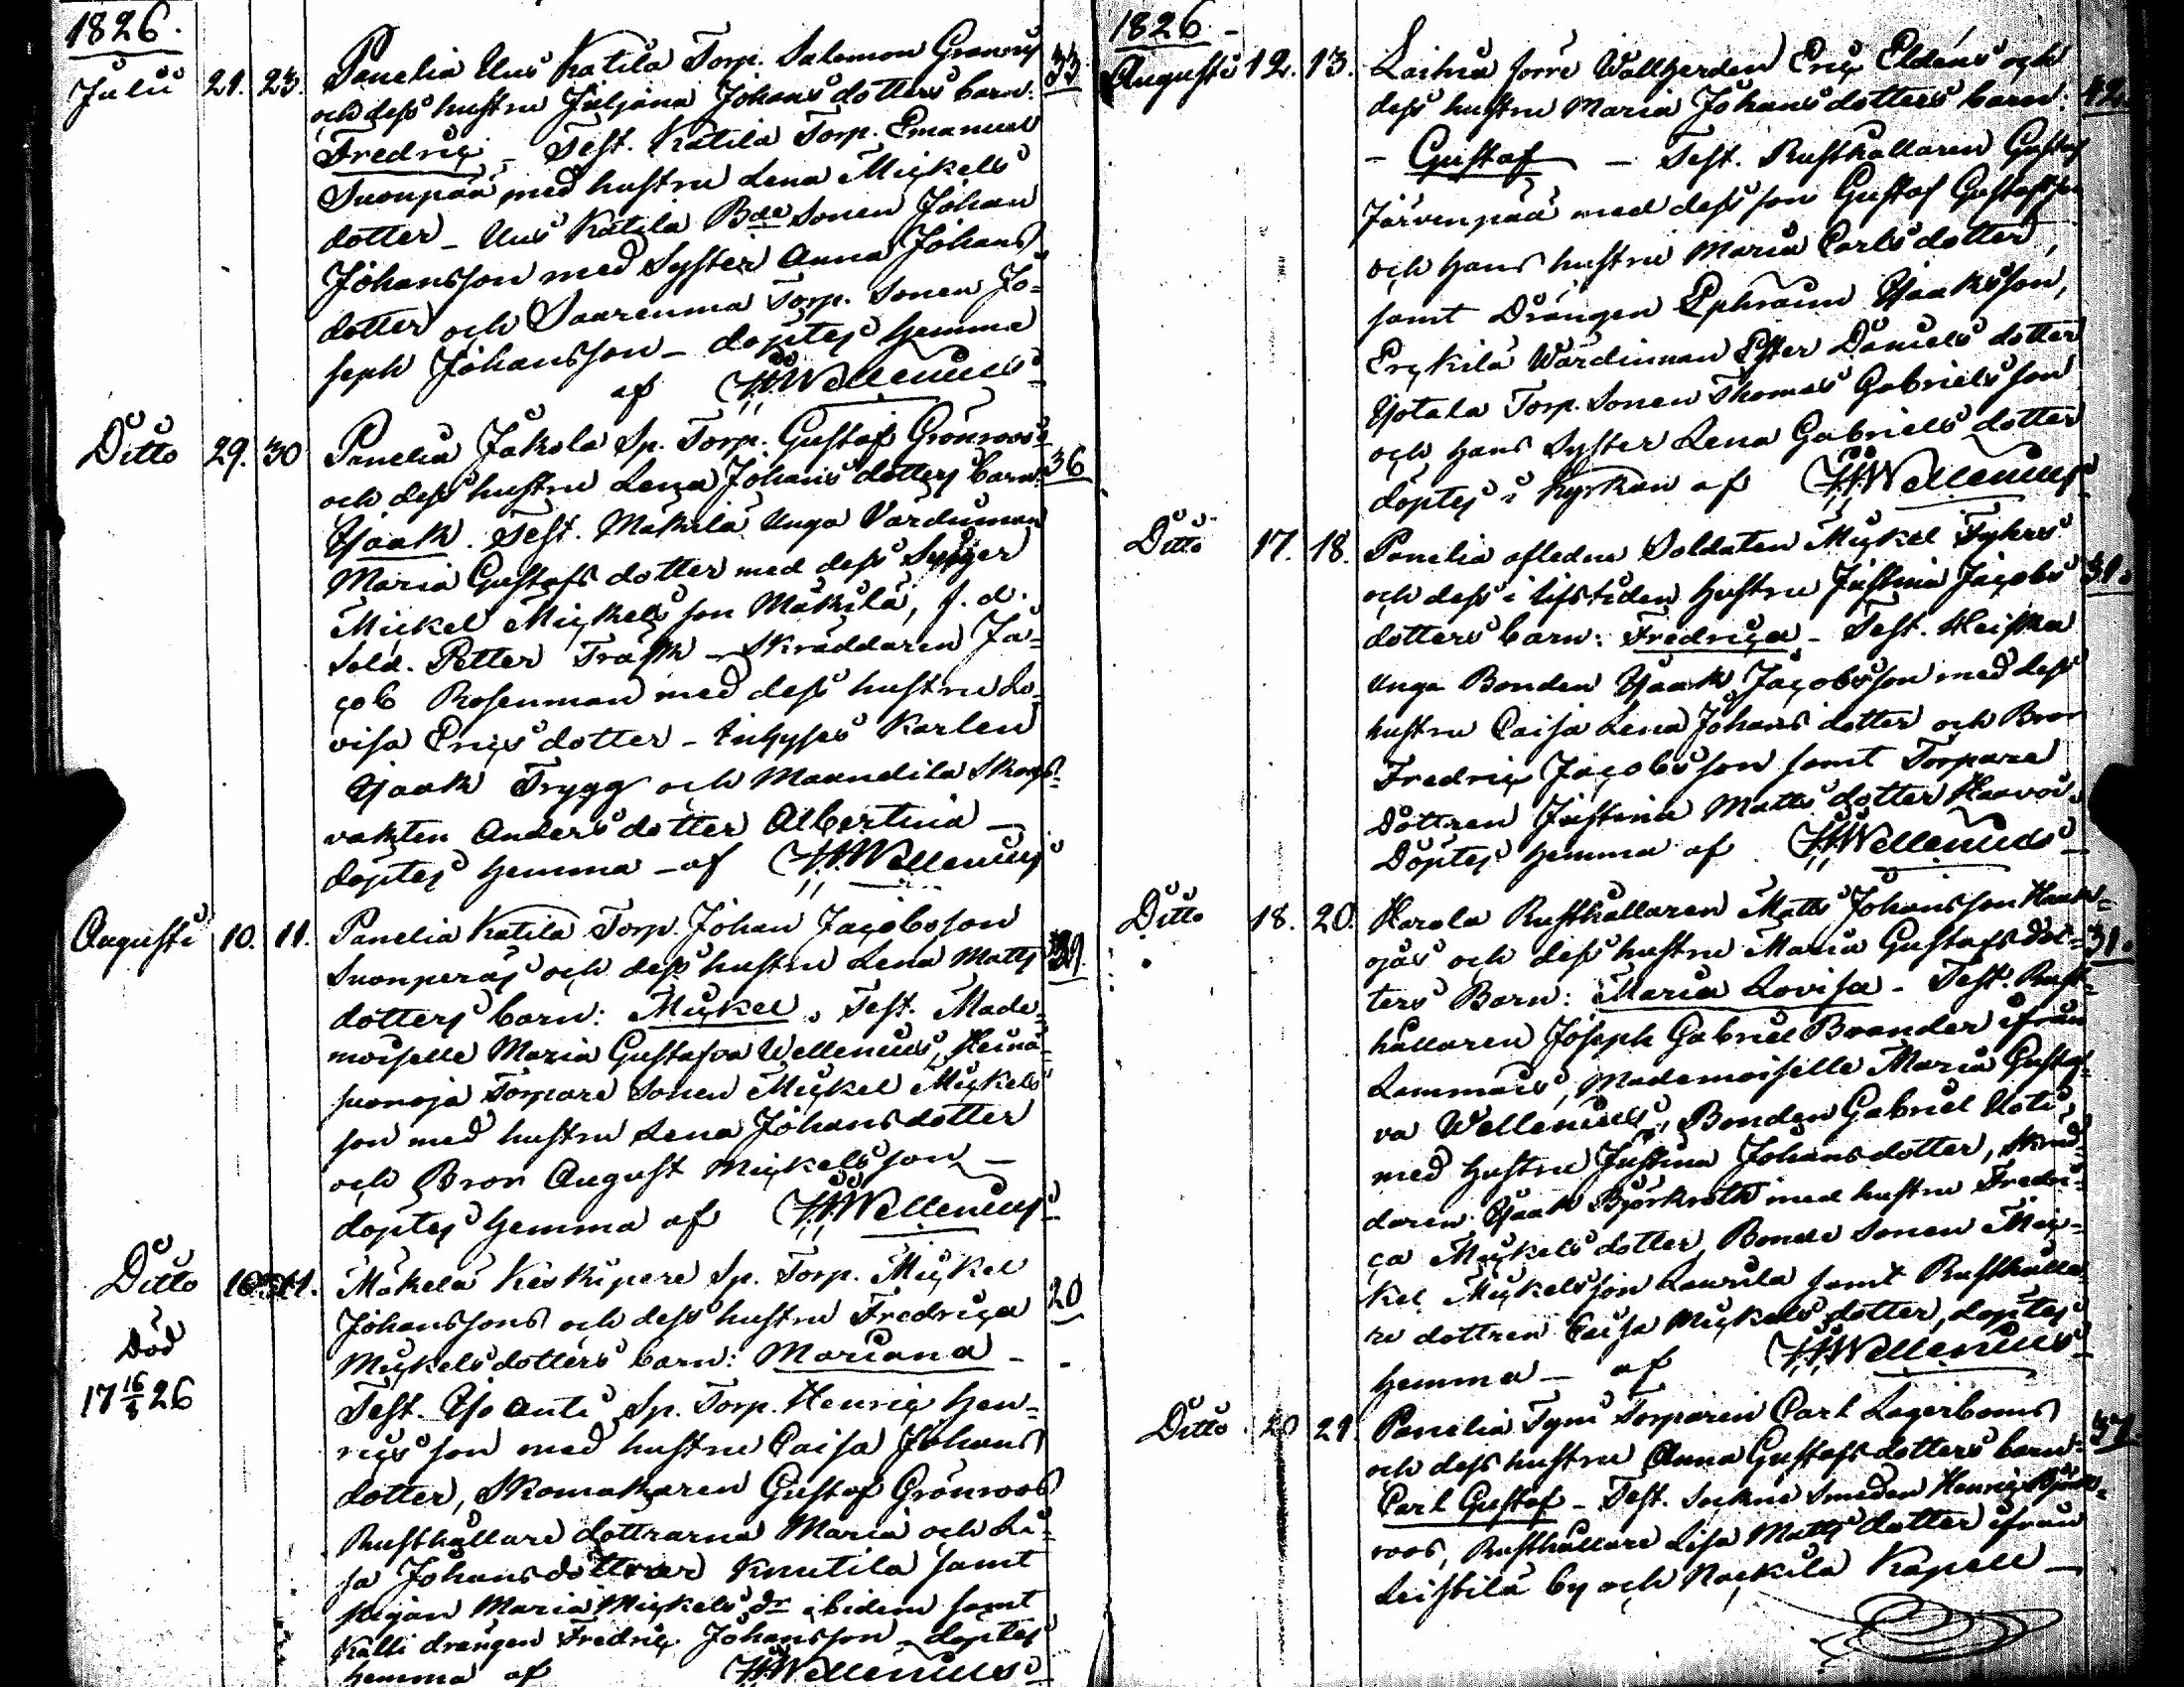 1826.
Julii 21. 23. Panelia Uus Katila Torp. Salomon Grönroos 33
och dess hustru Juljana Johans dotters barn:
Fredric – Test. Katila Torp. Emanuel
Suonpää med hustru Lena Mickels
dotter – Uus Katila Bde Sonen Johan
Johansson med Syster Anna Johans
dotter och Saarenma Torp. Sonen Jo-
seph Johansson – döptes hemma
af H.Wellenius
Ditto 29. 30 Panelia Jakola Sp. Torp. Gustaf Grönroos
och dess hustru Lena Johans dotters barn: 36
Isaak. Test. Mäkilä Unga Värdinnan
Maria Gustafs dotter med dess
Mickel Mickelsson Mäkilä, f. d.
Sold. Petter Träsk – Skräddaren Ja-
cob Rosenman med dess hustru Lo-
visa Erics dotter – Inhyses Karlen
Isaak Trygg och Maandila Skogs-
vakten Anders dotter Albertina –
döptes hemma – af H.Wellenius
Augusti 10. 11. Panelia Katila Torp. Johan Jacobsson
Suonperäs och dess hustru Lena Matts
dotters barn: Mickel. Test. Made-
moiselle Maria Gustafva Wellenius, Heinä-
suonoja Torpare Sonen Mickel Mickels
son med hustru Lena Johansdotter
och Bror August Mickelsson –
döptes hemma af H.Wellenius
Ditto 11. Mäkelä Keskipere Sp. Torp. Mickel
Johanssons och dess hustru Fredrica 20
Mickelsdotters barn: Mariana –
Död
17 16/8 26
Test. Iso Anti Sp. Torp. Henric Hen-
rics son med hustru Caisa Johans
dotter, Skomakaren Gustaf Grönroos
Rusthållare döttrarna Maria och Li-
sa Johansdöttrar Knutila samt
Pigan Maria Mickels dr ibidem samt
Källi drängen Fredric Johansson – döptes
hemma af H.Wellenius
1826 –
Augusti 12. 13. Laihia Jorre Wallherden Eric Eldéns och
dess hustru Maria Johansdotters barn: 42.
– Gustaf – Test. Rusthållaren Gustaf
Järvenpää med dess son Gustaf Gustafsson
och hans hustru Maria Carlsdotter,
samt Drängen Ephraim Isaaksson,
Erckilä Wärdinnan Ester Daniels dotter
Isotala Torp. Sonen Thomas Gabrielsson
och hans Syster Lena Gabriels dotter
döptes i kyrkan af H.Wellenius
Ditto 17. 18. Panelia afledne Soldaten Mickel Tykers
och dess i lifstiden hustru Justina Jacobs 31.
dotters barn: Fredrica – Test. Heiska
unga Bonden Isaak Jacobsson med dess
hustru Caisa Lena Johans dotter och Bror
Fredric Jacobsson samt Torpare
Dottren Justina Matts dotter Haavoi.
Döptes hemma af H.Wellenius
Ditto 18. 20. Harola Rusthållaren Matts Johansson Haan-
ojas och dess hustru Maria Gustafs dot- 31.
ters Barn: Maria Lovisa – Test. Rust-
hållaren Joseph Gabriel Brander ifrån
Lammais, Mademoiselle Maria Gustaf-
va Wellenius, Bonden Gabriel Uoti
med hustru Justina Johansdotter, Skräd-
daren Isaak Björkroth med hustru Fredri-
ca Mickels dotter, Bonde Sonen Mic-
kel Mickelsson Laurila samt Rusthålla-
re dottren Caisa Mickels dotter, döptes
hemma – af H.Wellenius
Ditto 20 21 Panelia Tyni Torparen Carl Lagerboms 37.
och dess hustru Anna Gustafsdotters barn
Carl Gustaf – Test. Sockne Smeden Henric Björk-
roos, Rusthållare Lisa Matts dotter ifrån
Leistilä by och Nackila Kapell –